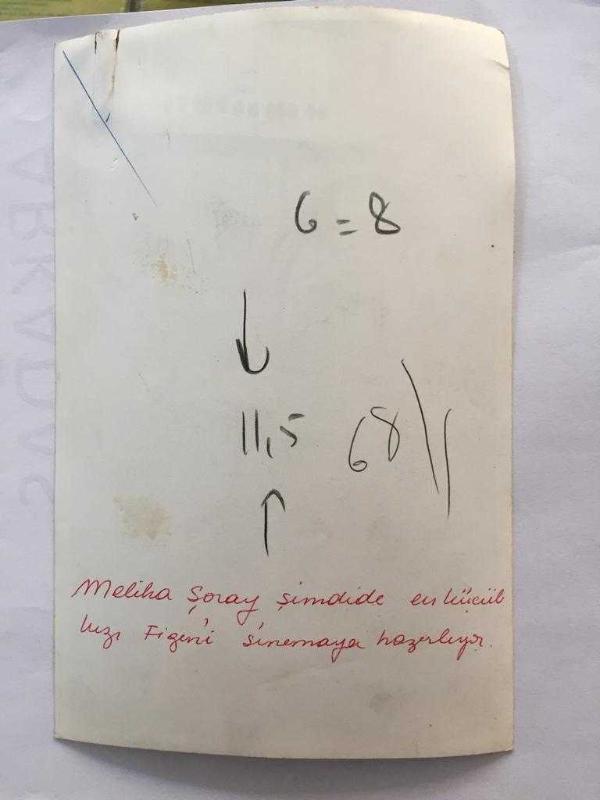 6 = 8
11,5
68
Meliha Şoray şimdide en küçük
kızı Figen'i sinemaya hazırlıyor.